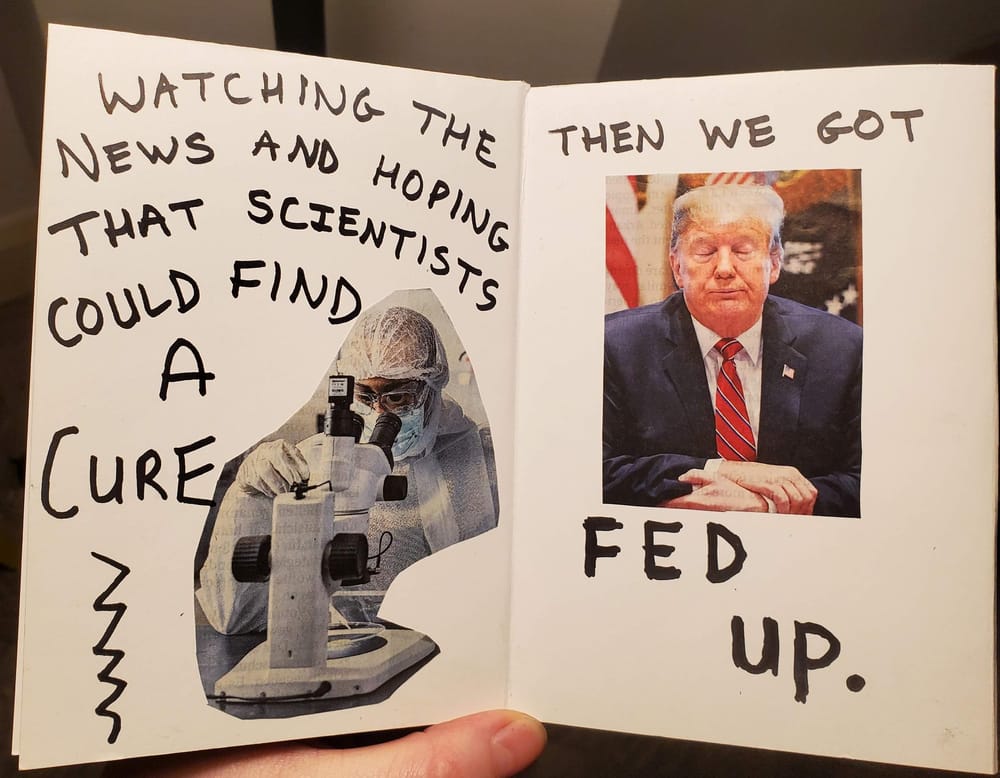 WATCHING THE
NEWS AND HOPING
THAT SCIENTISTS
COULD FIND
A
CURE
THEN WE GOT
FED
UP.